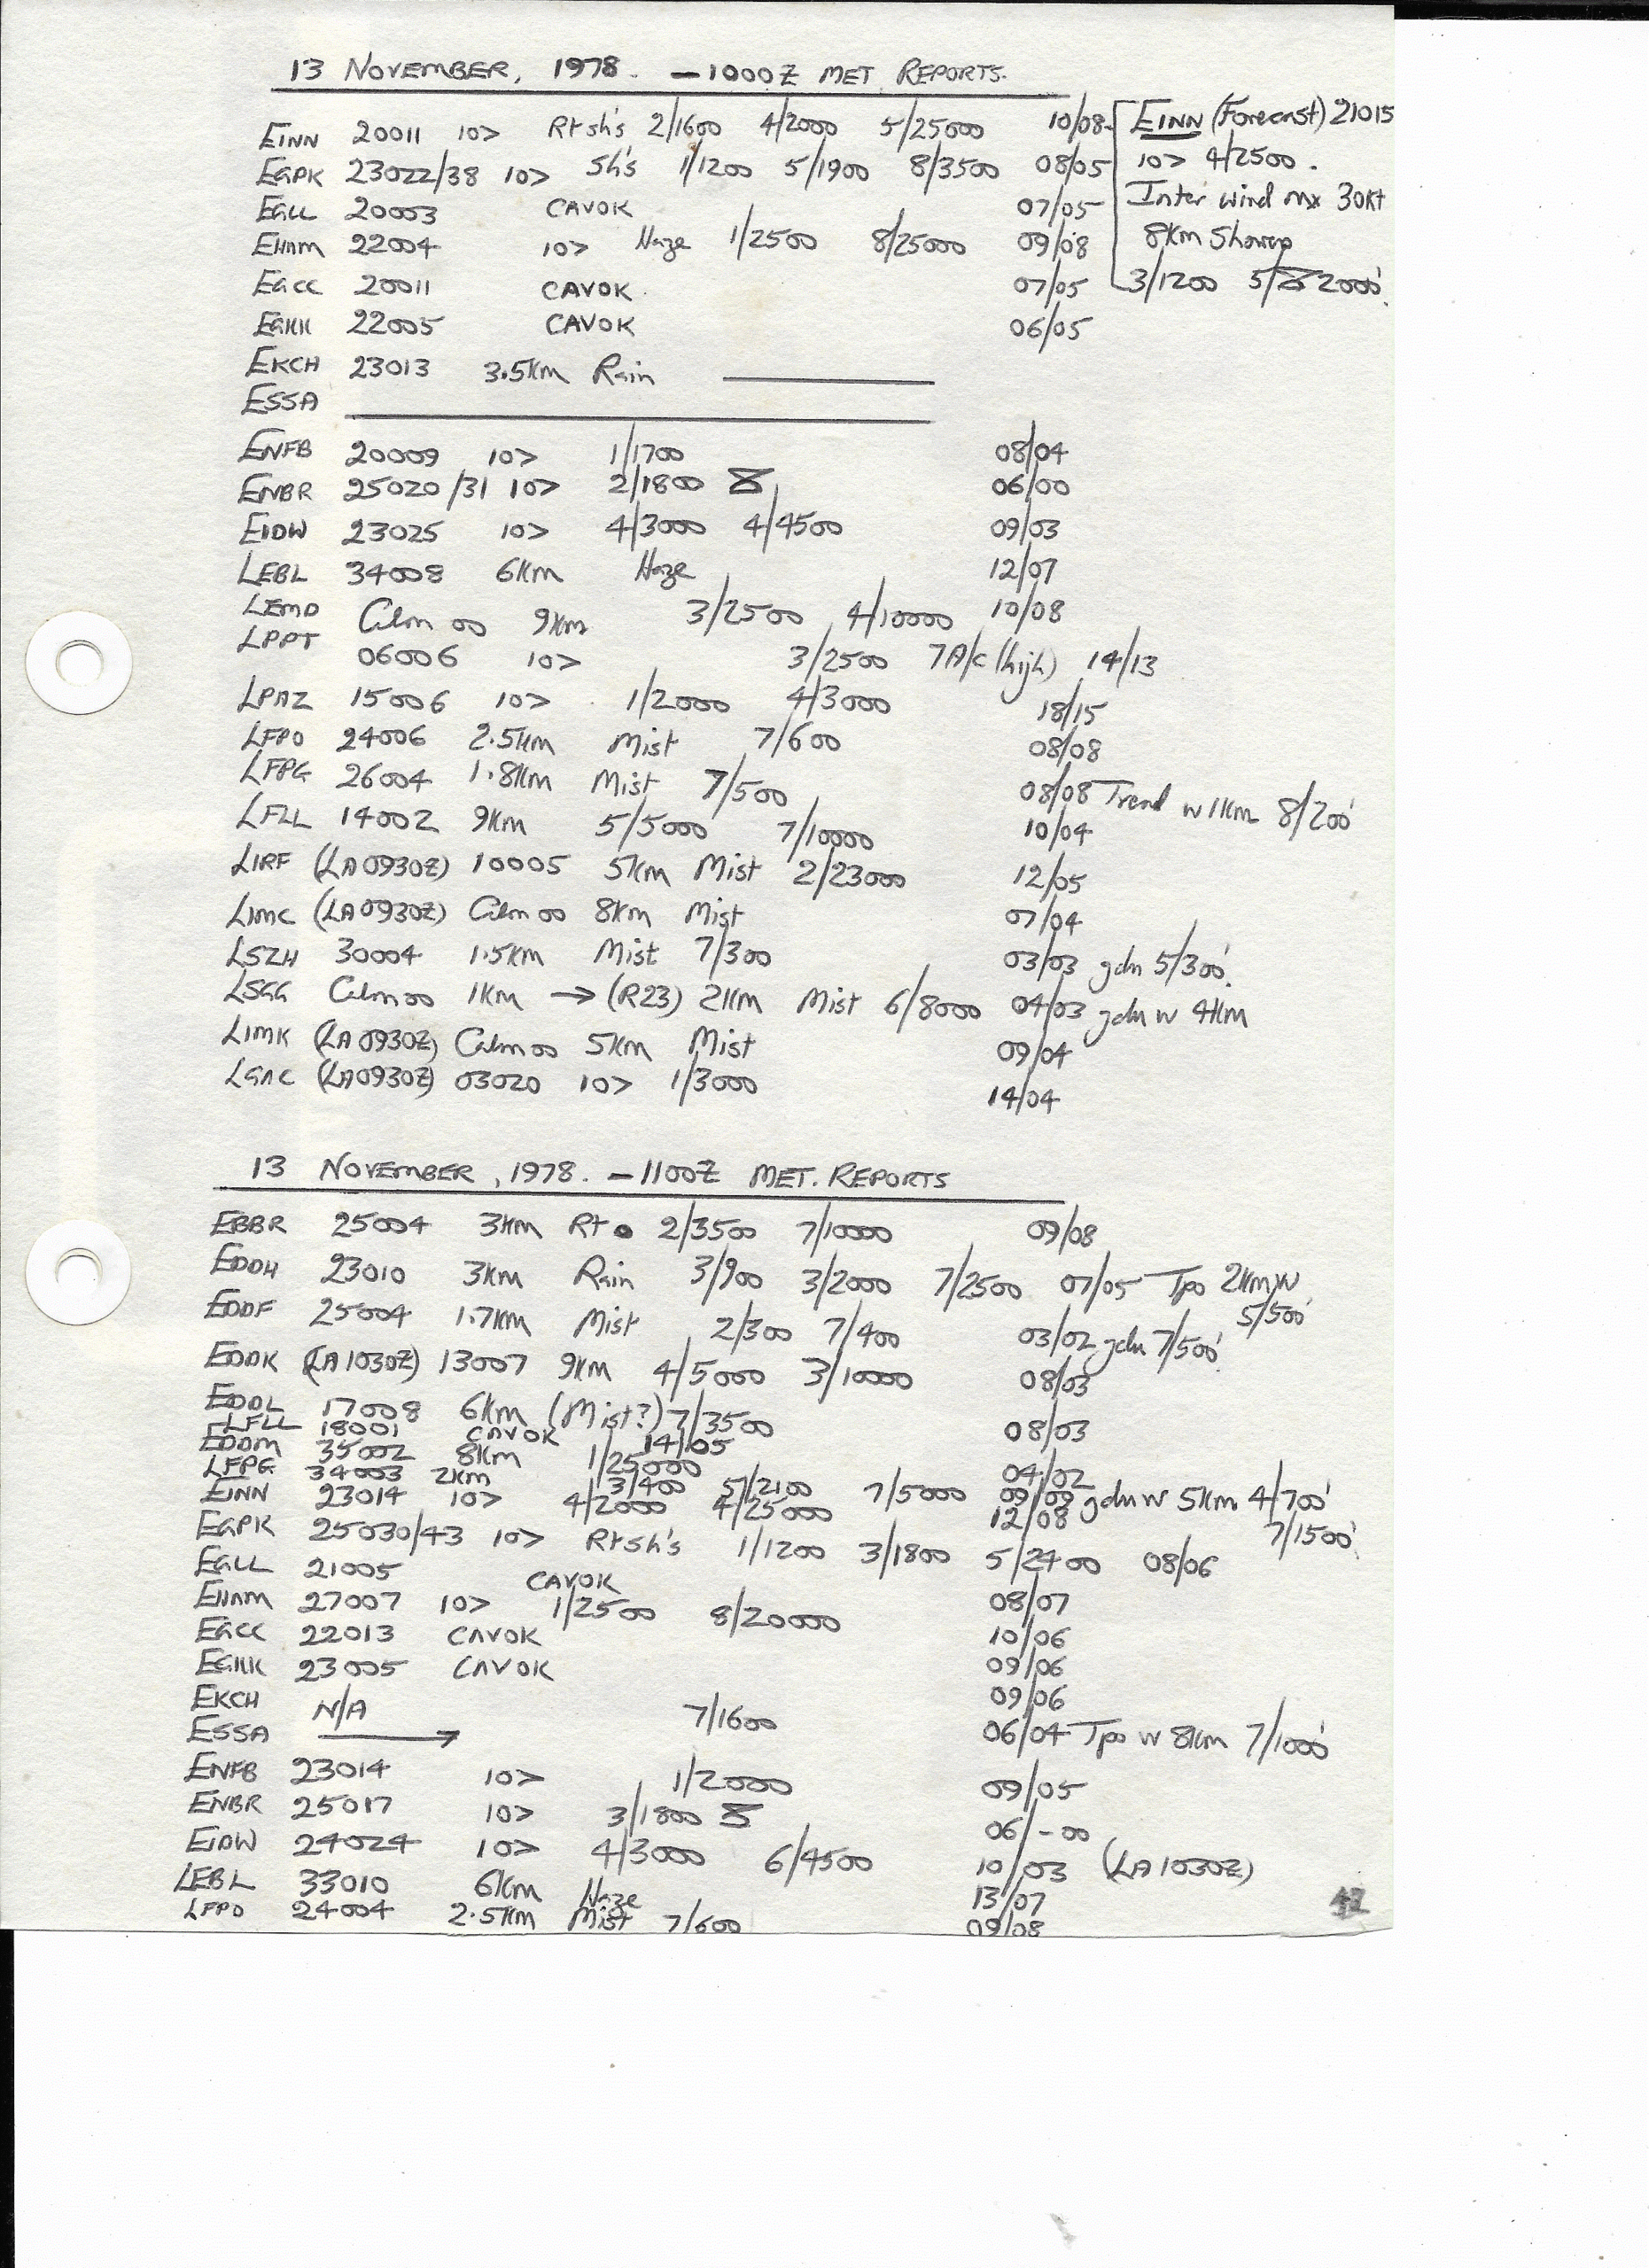 13 NOVEMBER, 1978. - 1000Z MET REPORTS.
EINN 20011 10> Rtsh's 2/1600 4/2000 5/25000 10/08
EINN (Forecast) 21015
EGPK 23022/38 10> Sh's 1/1200 5/1900 8/3500 08/05
10> 4/2500.
EGLL 20003 CAVOK 07/05
Inter wind mx 30kt
EHAM 22004 10> Haze 1/2500 8/25000 09/08
8Km Showers
EGCC 20011 CAVOK 07/05
3/1200 5/2000'
EGKK 22005 CAVOK 06/05
EKCH 23013 3.5Km Rain
ESSA
ENFB 20009 10> 1/1700 08/04
ENBR 25020/31 10> 2/1800 06/00
EIDW 23025 10> 4/3000 4/4500 09/03
LEBL 34008 6Km Haze 12/07
LEMD Calm 00 9Km 3/2500 4/10000 10/08
LPPT 06006 10> 3/2500 7A/c (high) 14/13
LPAZ 15006 10> 1/2000 4/3000 18/15
LFPO 24006 2.5Km Mist 7/600 08/08
LFPG 26004 1.8Km Mist 7/500 08/08 Trend w 1Km 8/200'
LFLL 14002 9Km 5/5000 7/10000 10/04
LIRF (LA 0930Z) 10005 5Km Mist 2/23000 12/05
LIMC (LA 0930Z) Calm 00 8Km Mist 07/04
LSZH 30004 1.5Km Mist 7/300 03/03 gdn 5/300'.
LSGG Calm 00 1Km → (R23) 2Km Mist 6/8000 04/03 gdn w 4Km
LIMK (LA 0930Z) Calm 00 5Km Mist 09/04
LGAC (LA 0930Z) 03020 10> 1/3000 14/04
13 NOVEMBER, 1978. - 1100Z MET. REPORTS
EBBR 25004 3Km Rt 2/3500 7/10000 09/08
EDDH 23010 3Km Rain 3/900 3/2000 7/2500 07/05 Tpo 2Km w
5/500'
EDDF 25004 1.7Km Mist 2/300 7/400 03/02 gdn 7/500'
EDDK (LA 1030Z) 13007 9Km 4/5000 3/10000 08/03
EDDL 17008 6Km (Mist?) 7/3500 08/03
LFLL 18001 CAVOK 14/05
EDDM 35002 8Km 1/25000 04/02
LFPG 34003 2Km 3/400 5/2100 7/5000 09/09 gdn w 5Km 4/700'
7/1500'
EINN 23014 10> 4/2000 4/25000 12/08
EGPK 25030/43 10> Rtsh's 1/1200 3/1800 5/2400 08/06
EGLL 21005 CAVOK 08/07
EHAM 27007 10> 1/2500 8/20000 10/06
EGCC 22013 CAVOK 09/06
EGKK 23005 CAVOK 09/06
EKCH N/A 7/1600 06/04 Tpo w 8Km 7/1000'
ESSA →
ENFB 23014 10> 1/2000 09/05
ENBR 25017 10> 3/1800 06/-00
EIDW 24024 10> 4/3000 6/4500 10/03 (LA 1030Z)
LEBL 33010 6Km Haze 13/07
LFPO 24004 2.5Km Mist 7/600 09/08